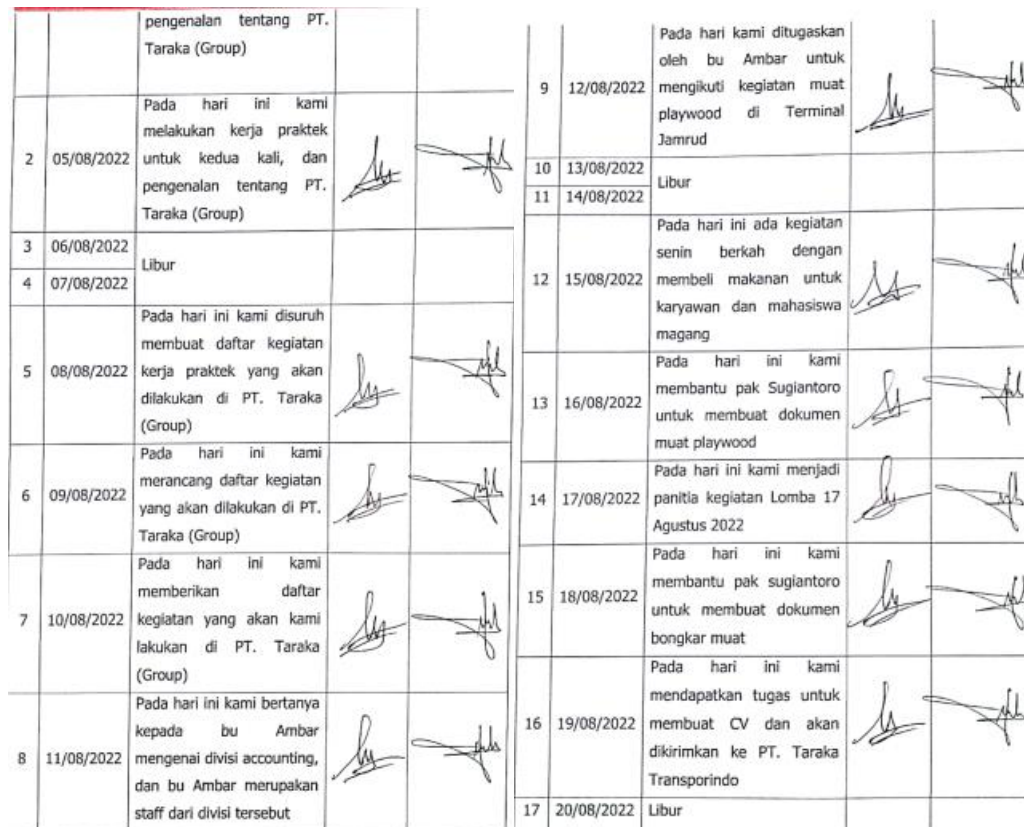 pengenalan tentang PT.
Taraka (Group)
2 05/08/2022
Pada hari ini kami
melakukan kerja praktek
untuk kedua kali, dan
pengenalan tentang PT.
Taraka (Group)
3 06/08/2022
4 07/08/2022
Libur
5 08/08/2022
Pada hari ini kami disuruh
membuat daftar kegiatan
kerja praktek yang akan
dilakukan di PT. Taraka
(Group)
6 09/08/2022
Pada hari ini kami
merancang daftar kegiatan
yang akan dilakukan di PT.
Taraka (Group)
7 10/08/2022
Pada hari ini kami
memberikan daftar
kegiatan yang akan kami
lakukan di PT. Taraka
(Group)
8 11/08/2022
Pada hari ini kami bertanya
kepada bu Ambar
mengenai divisi accounting,
dan bu Ambar merupakan
staff dari divisi tersebut
9 12/08/2022
Pada hari kami ditugaskan
oleh bu Ambar untuk
mengikuti kegiatan muat
playwood di Terminal
Jamrud
10 13/08/2022
11 14/08/2022
Libur
12 15/08/2022
Pada hari ini ada kegiatan
senin berkah dengan
membeli makanan untuk
karyawan dan mahasiswa
magang
13 16/08/2022
Pada hari ini kami
membantu pak Sugiantoro
untuk membuat dokumen
muat playwood
14 17/08/2022
Pada hari ini kami menjadi
panitia kegiatan Lomba 17
Agustus 2022
15 18/08/2022
Pada hari ini kami
membantu pak sugiantoro
untuk membuat dokumen
bongkar muat
16 19/08/2022
Pada hari ini kami
mendapatkan tugas untuk
membuat CV dan akan
dikirimkan ke PT. Taraka
Transporindo
17 20/08/2022 Libur